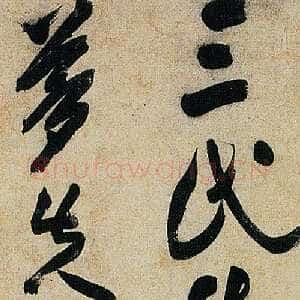 三代
夢失
Shufawang.CN